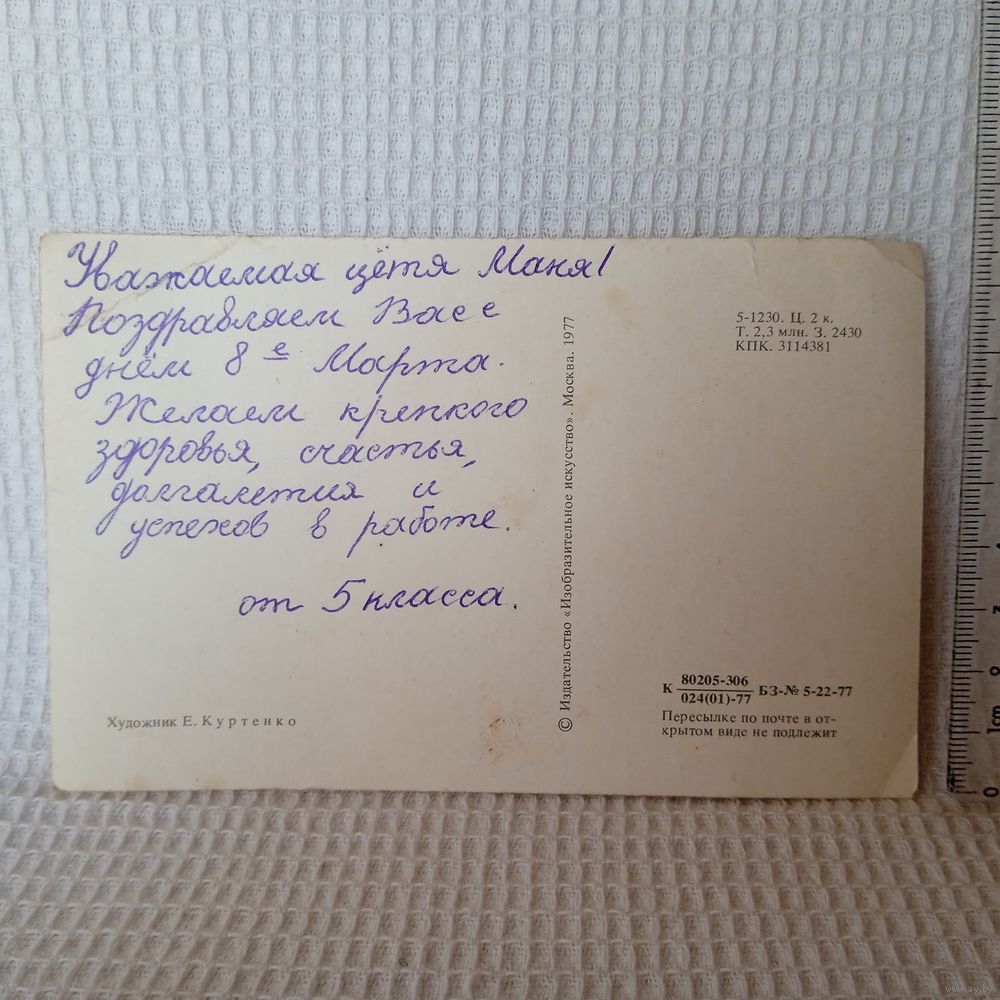 Уважаемая цётя Маня!
Поздравляем Вас с
днём 8 е Марта.
Желаем крепкого
здоровья, счастья,
долгалетия и
успехов в работе.
от 5 класса.
Художник Е. Куртенко
© Издательство «Изобразительное искусство». Москва. 1977
5-1230. Ц. 2 к.
Т. 2,3 млн. З. 2430
КПК. 3114381
К 80205-306 БЗ-№ 5-22-77
024(01)-77
Пересылке по почте в от-
крытом виде не подлежит
0 1см 2 3 4
www.ay.by